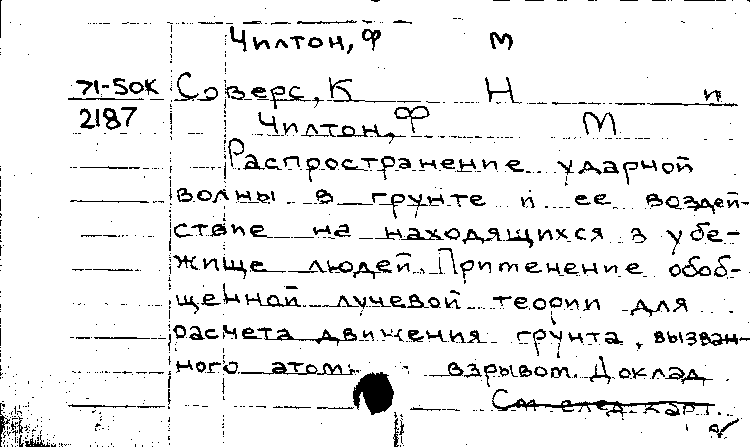 Чилтон, Ф М
71-50К Соверс, К Н и
2187 Чилтон, Ф М
Распространение ударной
волны в грунте и ее воздей-
ствие на находящихся в убе-
жище людей. Применение обоб-
щенной лучевой теории для
расчета движения грунта, вызван-
ного атомн взрывом. Доклад
См след. карт.